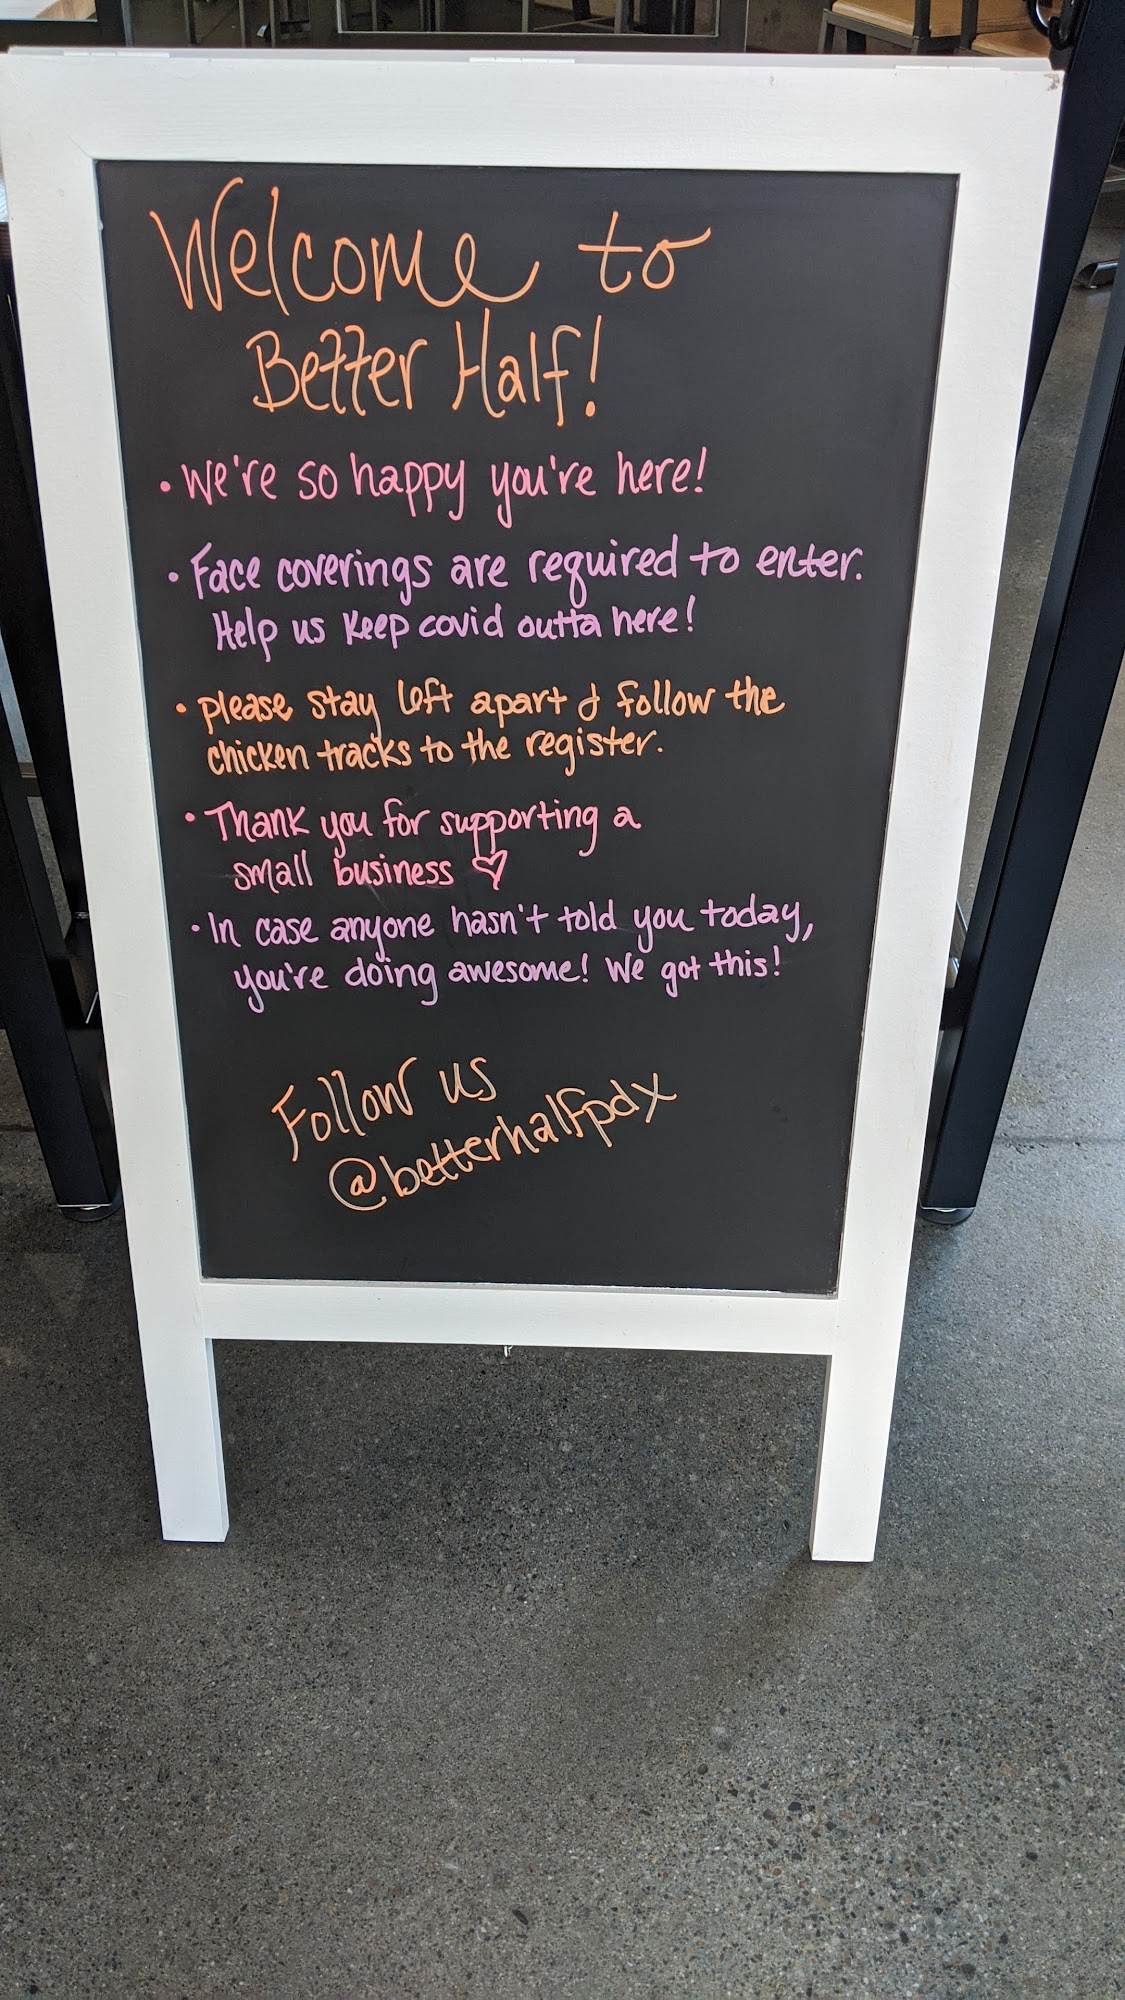 Welcome to
Better Half!
• We're so happy you're here!
• Face coverings are required to enter.
Help us keep covid outta here!
• please stay 6ft apart & follow the
chicken tracks to the register.
• Thank you for supporting a
small business ♡
• In case anyone hasn't told you today,
you're doing awesome! We got this!
Follow us
@betterhalfpdx